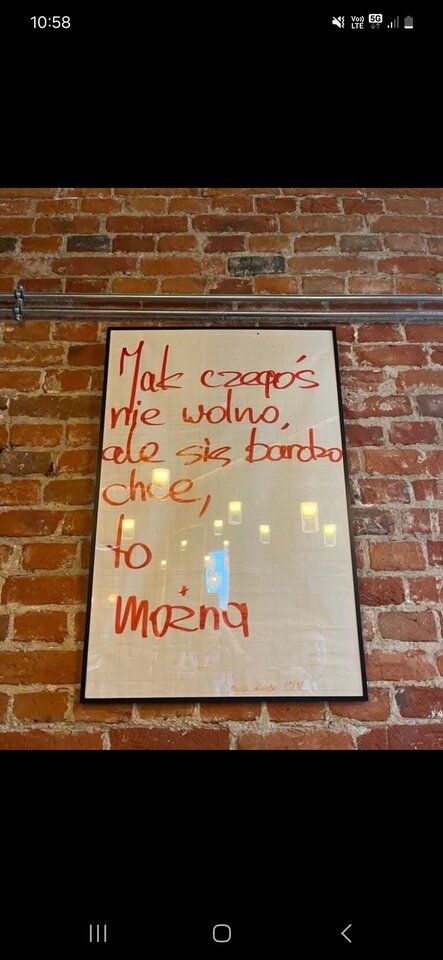 10:58
Vo))
LTE
5G
Jak czegoś
nie wolno,
ale się bardzo
chce,
to
można